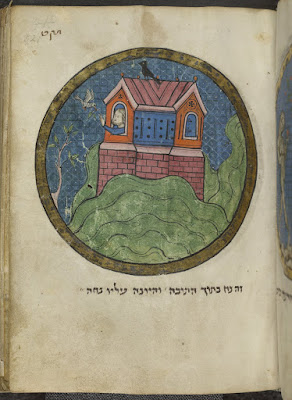 זה נח בתוך התיבה והיונה עליו נחה